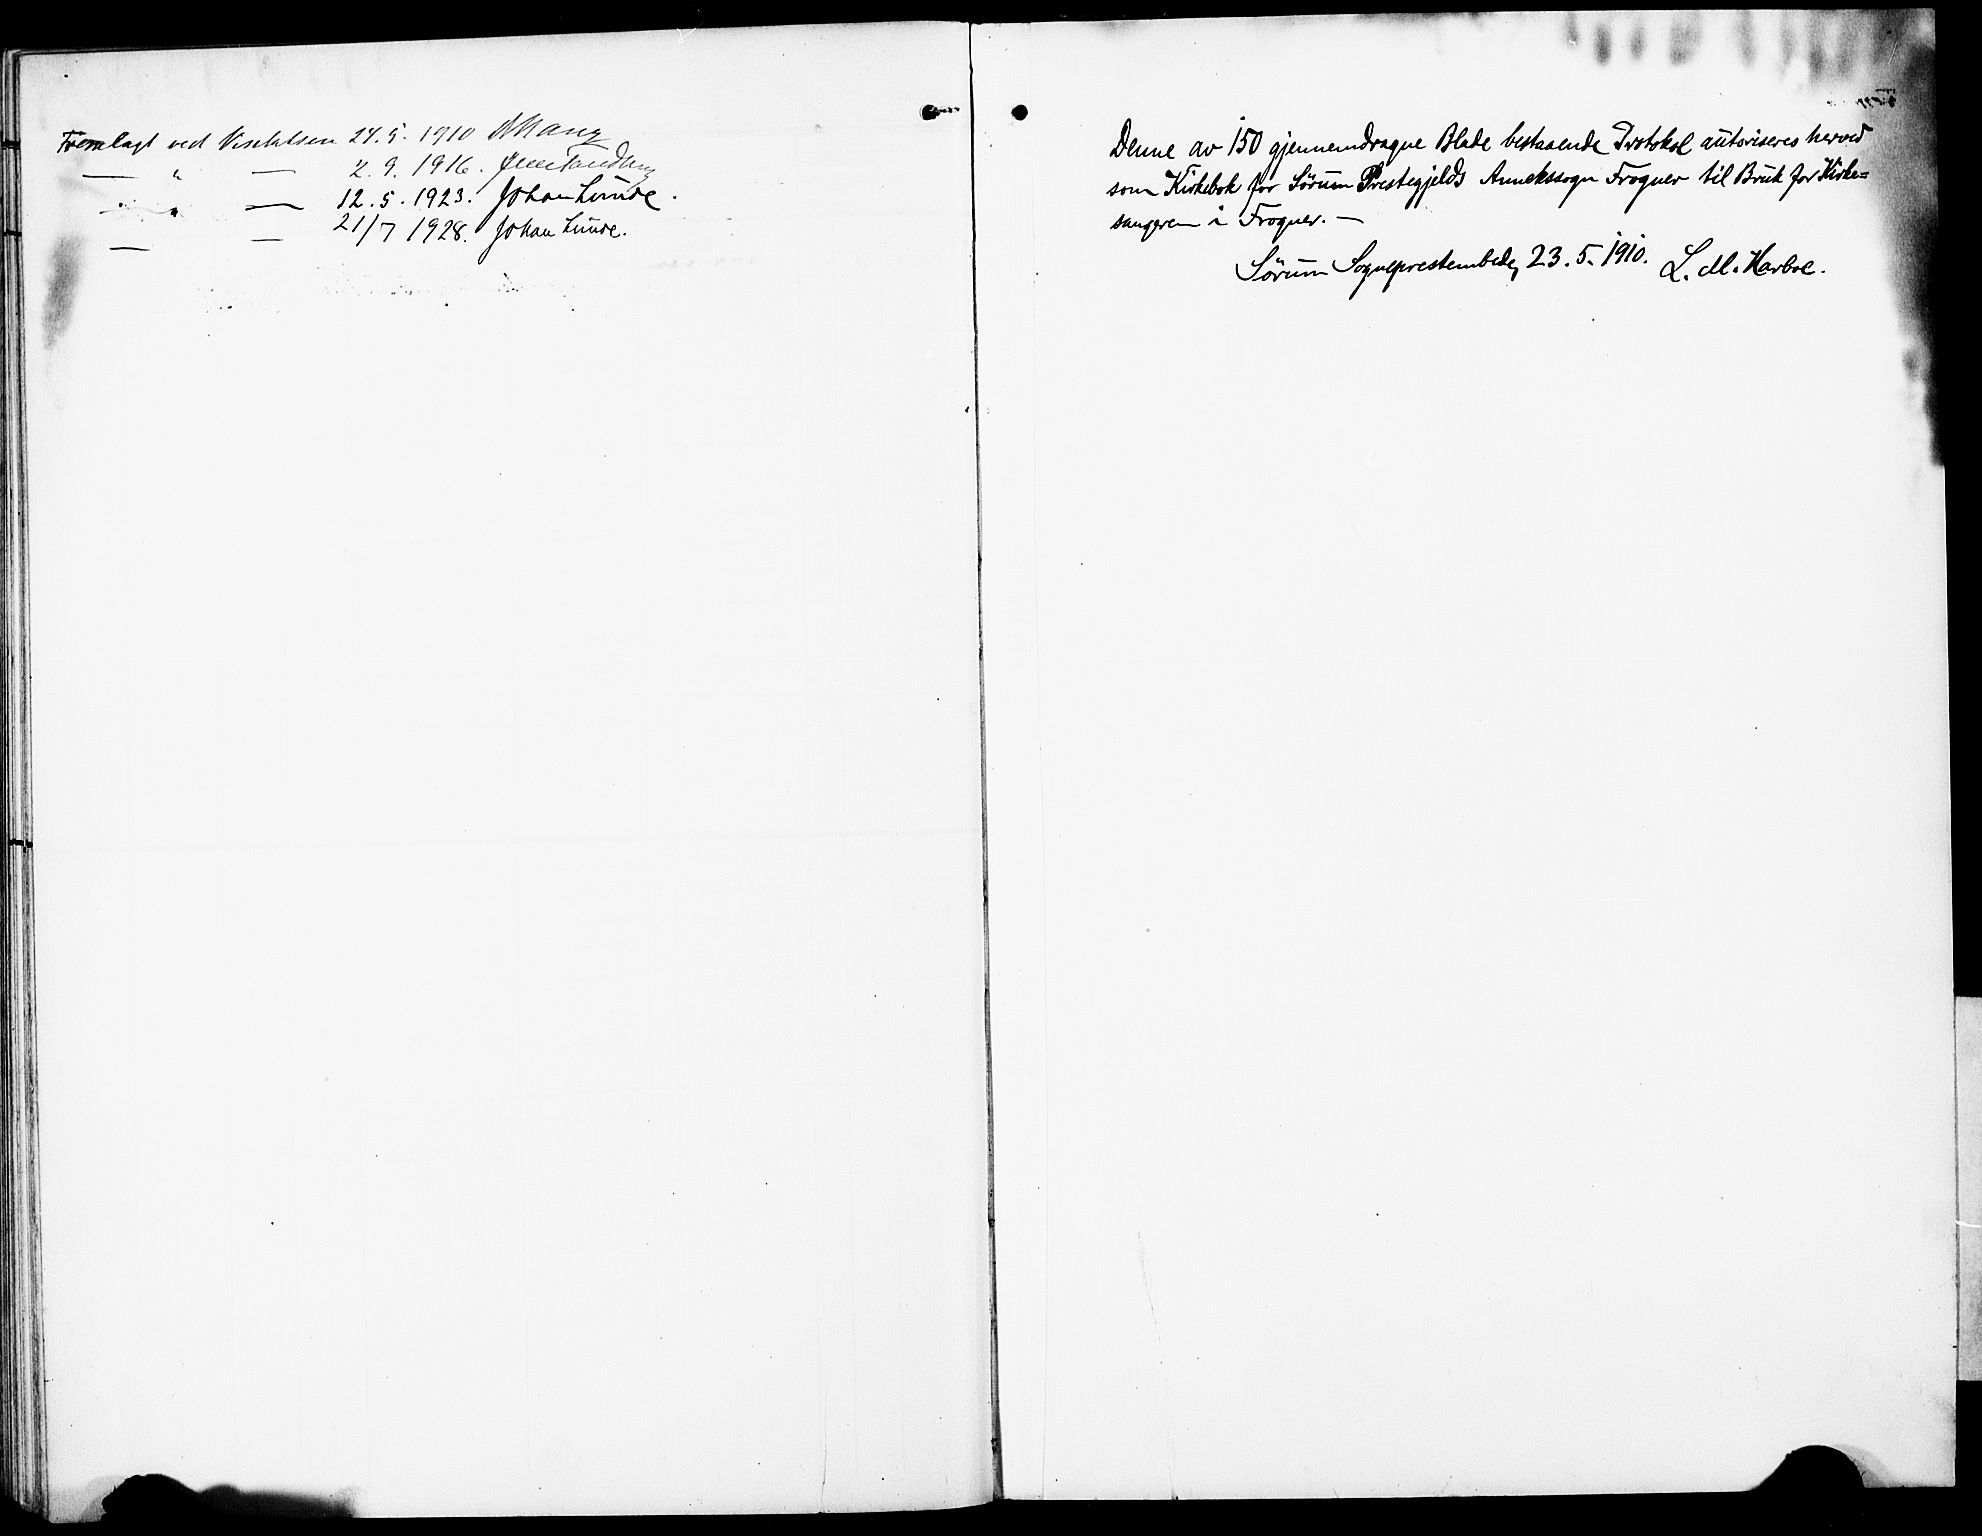 Fremlagt ved Visitatsen 24. 5. 1910
— " — 2. 9. 1916. Jens Tandberg
— " — 12. 5. 1923. Johan Lunde.
— — 21/7 1928. Johan Lunde.
Denne av 150 gjennemdragne Blade bestaaende Protokol autoriseres herved
som Kirkebok for Sørum Prestegjelds Annekssogn Frogner til Bruk for Kirke=
sangeren i Frogner. —
Sørum Sogneprestembede, 23. 5. 1910. L. M. Harboe.